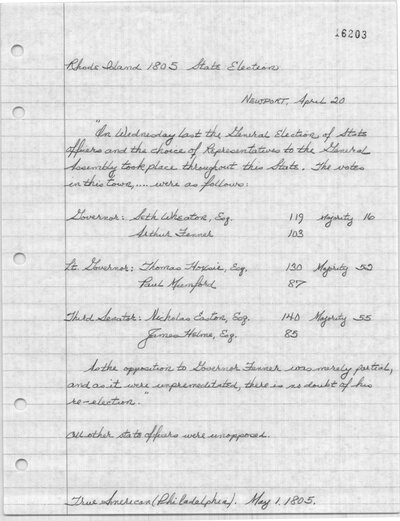 16203
Rhode Island 1805 State Election
Newport, April 20
"On Wednesday last the General Election of State
officers and the choice of Representatives to the General
Assembly took place throughout this State. The votes
in this town,.... were as follows:
Governor: Seth Wheaton, Esq. 119 Majority 16
Arthur Fenner 103
Lt Governor: Thomas Hoxsie, Esq. 130 Majority
Paul Mumford 87
Third Senator: Nicholas Easton, Esq. 140 Majority 55
James Helme, Esq. 85
As the opposition to Governor Fenner was merely partial,
and as it were unpremeditated, there is no doubt of his
re-election."
All other state officers were unopposed.
True American (Philadelphia). May 1, 1805.